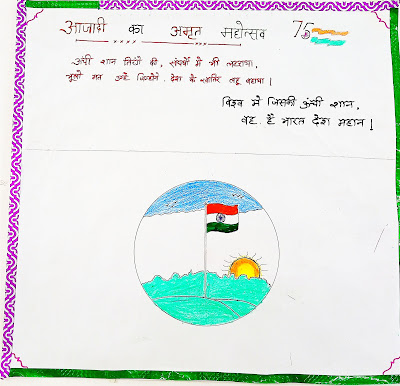 आजादी का अमृत महोत्सव 75
ऊंची शान तिरंगे की, संघर्षों में भी लहराया,
भूलो मत उन्हें जिन्होंने, देश के खातिर लहू बहाया।
विश्व में जिसकी ऊंची शान,
वह है भारत देश महान।